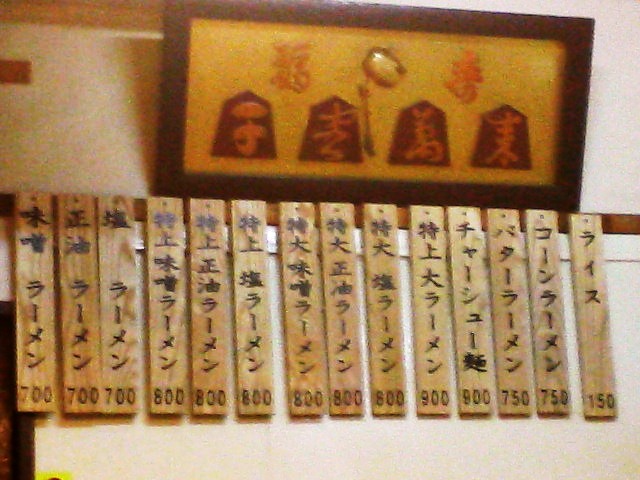 味噌 ラーメン 700
正油 ラーメン 700
塩 ラーメン 700
特上味噌ラーメン 800
特上正油ラーメン 800
特上 塩ラーメン 800
特大味噌ラーメン 800
特大正油ラーメン 800
特大 塩ラーメン 800
特上大ラーメン 900
チャーシュー麺 900
バターラーメン 750
コーンラーメン 750
ライス 150